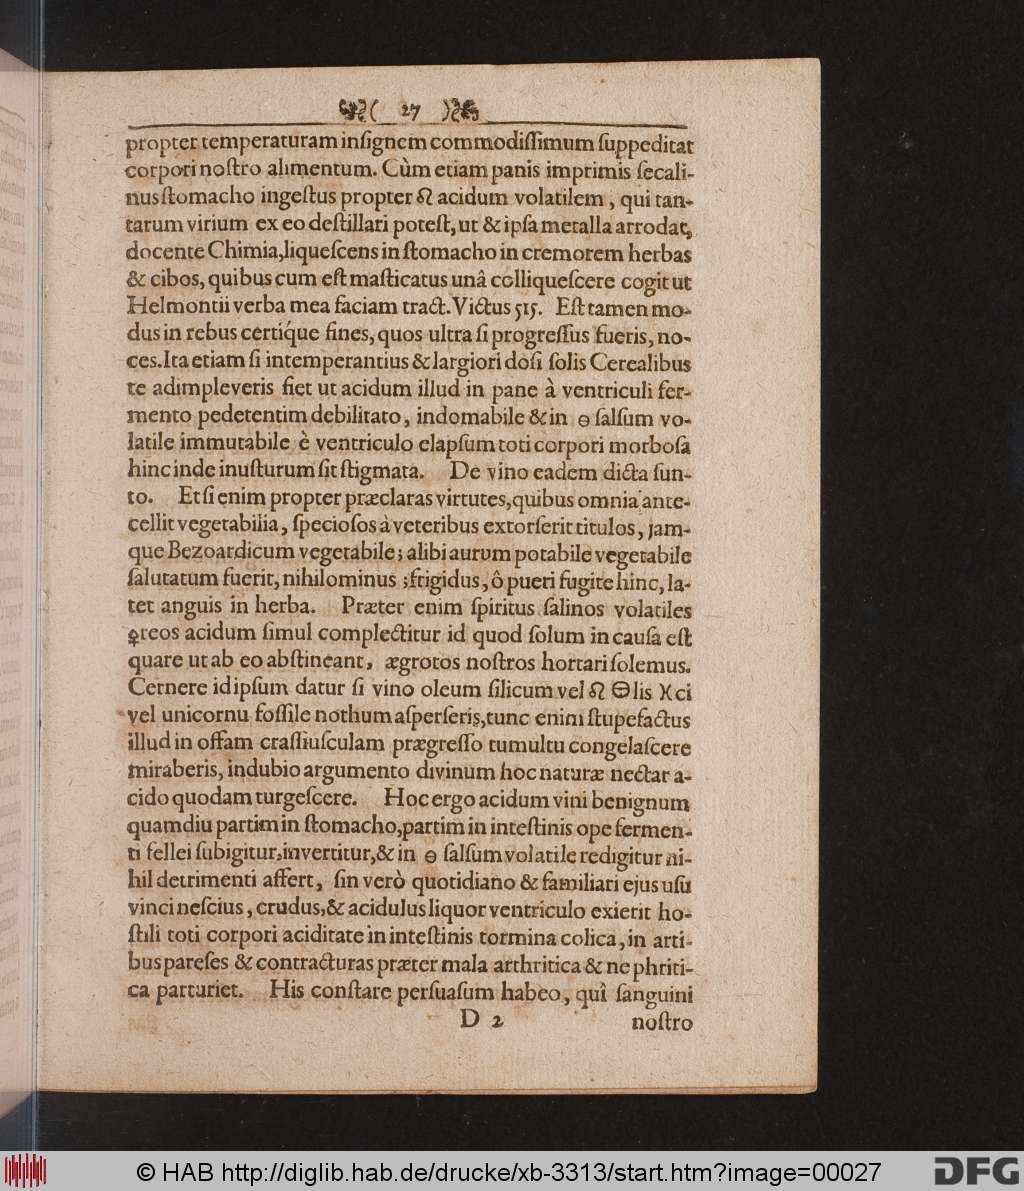 ( 27 )
propter temperaturam inſignem commodiſſimum ſuppeditat
corpori noſtro alimentum. Cùm etiam panis imprimis ſecali-
nus ſtomacho ingeſtus propter ☊ acidum volatilem, qui tan-
tarum virium ex eo deſtillari poteſt, ut & ipſa metalla arrodat,
docente Chimia, liqueſcens in ſtomacho in cremorem herbas
& cibos, quibus cum eſt maſticatus unâ colliqueſcere cogit ut
Helmontii verba mea faciam tract. Victus 515. Eſt tamen mo-
dus in rebus certiq́ue fines, quos ultra ſi progreſſus fueris, no-
ces. Ita etiam ſi intemperantius & largiori doſi ſolis Cerealibus
te adimpleveris fiet ut acidum illud in pane à ventriculi fer-
mento pedetentim debilitato, indomabile & in ⊖ ſalſum vo-
latile immutabile è ventriculo elapſum toti corpori morboſâ
hinc inde inuſturum ſit ſtigmata. De vino eadem dicta ſun-
to. Etſi enim propter præclaras virtutes, quibus omnia ante-
cellit vegetabilia, ſpecioſos à veteribus extorſerit titulos, jam-
que Bezoardicum vegetabile; alibi aurum potabile vegetabile
ſalutatum fuerit, nihilominus ; frigidus, ô pueri fugite hinc, la-
tet anguis in herba. Præter enim ſpiritus ſalinos volatiles
🜍reos acidum ſimul complectitur id quod ſolum in cauſa eſt
quare ut ab eo abſtineant, ægrotos noſtros hortari ſolemus.
Cernere id ipſum datur ſi vino oleum ſilicum vel ☊ ⊖lis )(ci
vel unicornu foſſile nothum aſperſeris, tunc enim ſtupefactus
illud in offam craſſiuſculam prægreſſo tumultu congelaſcere
miraberis, indubio argumento divinum hoc naturæ nectar a-
cido quodam turgeſcere. Hoc ergo acidum vini benignum
quamdiu partim in ſtomacho, partim in inteſtinis ope fermen-
ti fellei ſubigitur, invertitur, & in ⊖ ſalſum volatile redigitur ni-
hil detrimenti affert, ſin verò quotidiano & familiari ejus uſu
vinci neſcius, crudus, & acidulus liquor ventriculo exierit ho-
ſtili toti corpori aciditate in inteſtinis tormina colica, in arti-
bus pareſes & contracturas præter mala arthritica & nephriti-
ca parturiet. His conſtare perſuaſum habeo, quî ſanguini
D 2 noſtro
© HAB http://diglib.hab.de/drucke/xb-3313/start.htm?image=00027
DFG